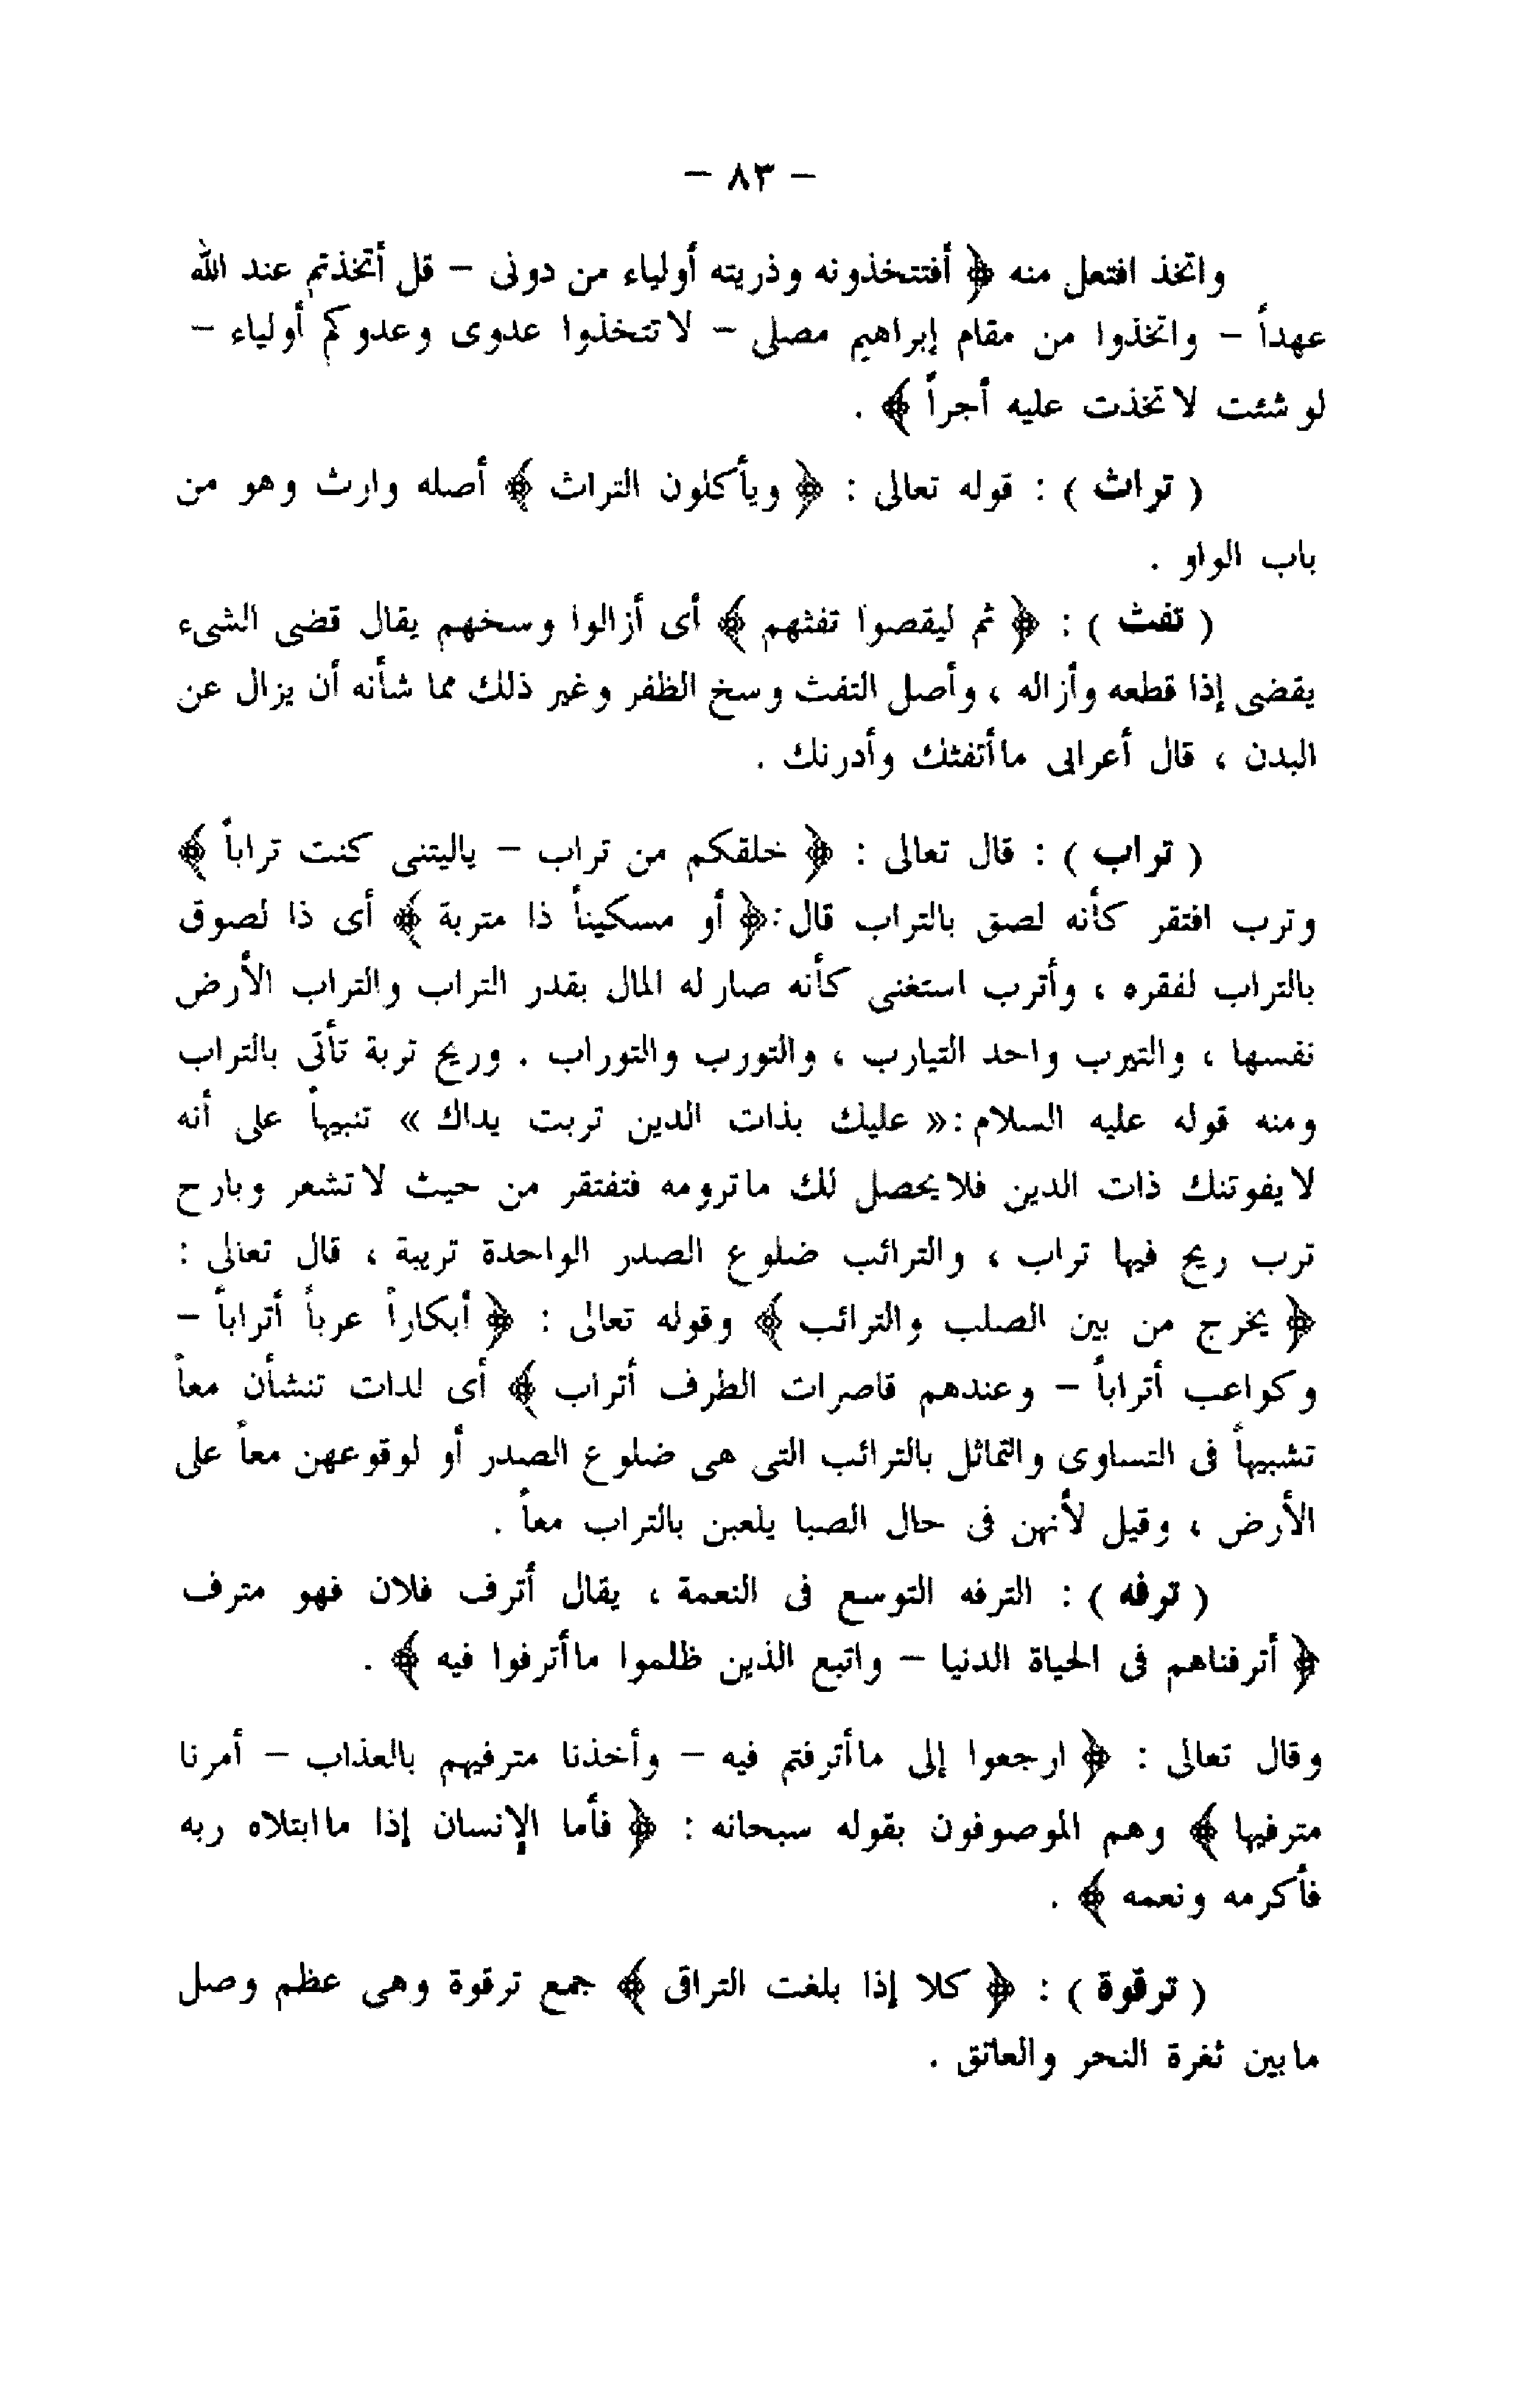 – ٨٣ –
واتخذ افتعل منه ﴿ أفتتخذونه وذريته أولياء من دونى – قل أتخذتم عند الله
عهداً – واتخذوا من مقام إبراهيم مصلى – لا تتخذوا عدوى وعدوكم أولياء –
لو شئت لا تخذت عليه أجراً ﴾ .
( تراث ) : قوله تعالى : ﴿ ويأكلون التراث ﴾ أصله وارث وهو من
باب الواو .
( تفث ) : ﴿ ثم ليقصوا تفثهم ﴾ أى أزالوا وسخهم يقال قضى الشىء
يقضى إذا قطعه وأزاله ، وأصل التفث وسخ الظفر وغير ذلك مما شأنه أن يزال عن
البدن ، قال أعرابى ماأتفثك وأدرنك .
( تراب ) : قال تعالى : ﴿ خلقكم من تراب – ياليتنى كنت تراباً ﴾
وترب افتقر كأنه لصق بالتراب قال:﴿ أو مسكيناً ذا متربة ﴾ أى ذا لصوق
بالتراب لفقره ، وأترب استغنى كأنه صار له المال بقدر التراب والتراب الأرض
نفسها ، والتيرب واحد التيارب ، والتورب والتوراب . وريح تربة تأتى بالتراب
ومنه قوله عليه السلام:« عليك بذات الدين تربت يداك » تنبيهاً على أنه
لا يفوتنك ذات الدين فلا يحصل لك ماترومه فتفتقر من حيث لا تشعر وبارح
ترب ريح فيها تراب ، والترائب ضلوع الصدر الواحدة تريبة ، قال تعالى :
﴿ يخرج من بين الصلب والترائب ﴾ وقوله تعالى : ﴿ أبكاراً عرباً أتراباً –
وكواعب أتراباً – وعندهم قاصرات الطرف أتراب ﴾ أى لدات تنشأن معاً
تشبيهاً فى التساوى والتماثل بالترائب التى هى ضلوع الصدر أو لوقوعهن معاً على
الأرض ، وقيل لأنهن فى حال الصبا يلعبن بالتراب معاً .
( ترفه ) : الترفه التوسع فى النعمة ، يقال أترف فلان فهو مترف
﴿ أترفناهم فى الحياة الدنيا – واتبع الذين ظلموا ماأترفوا فيه ﴾ .
وقال تعالى : ﴿ ارجعوا إلى ماأترفتم فيه – وأخذنا مترفيهم بالعذاب – أمرنا
مترفيها ﴾ وهم الموصوفون بقوله سبحانه : ﴿ فأما الإنسان إذا ماابتلاه ربه
فأكرمه ونعمه ﴾ .
( ترقوة ) : ﴿ كلا إذا بلغت التراقى ﴾ جمع ترقوة وهى عظم وصل
مابين ثغرة النحر والعاتق .